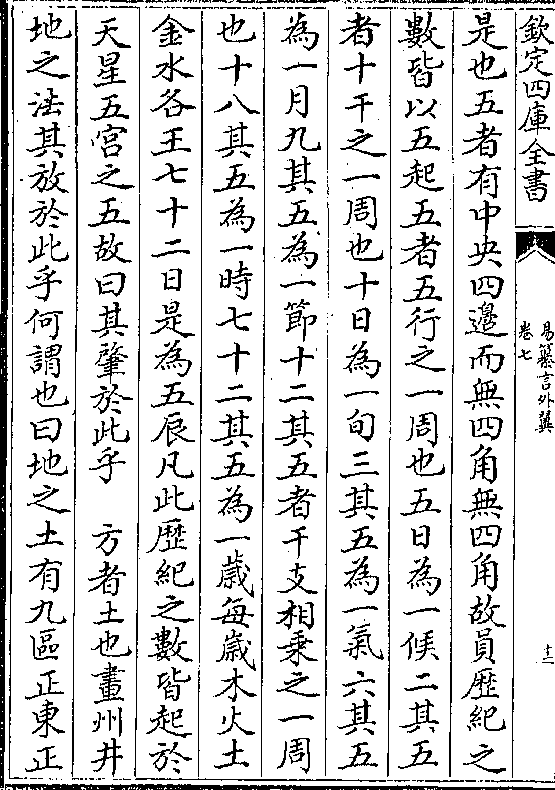 欽定四庫全書
易纂言外翼
卷七
十二
是也五者有中央四邉而無四角無四角故員歴紀之
數皆以五起五者五行之一周也五日為一候二其五
者十干之一周也十日為一旬三其五為一氣六其五
為一月九其五為一節十二其五者干支相乗之一周
也十八其五為一時七十二其五為一歳每歳木火土
金水各王七十二日是為五辰凡此歴紀之數皆起於
天星五宫之五故曰其肇於此乎　方者土也畫州井
地之法其放於此乎何謂也曰地之土有九區正東正